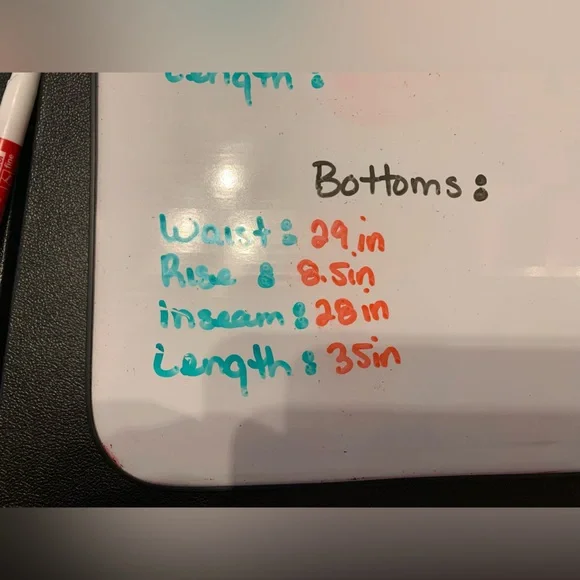 Length :
Bottoms :
Waist : 29 in
Rise : 8.5in
inseam : 28 in
Length : 35in
fine